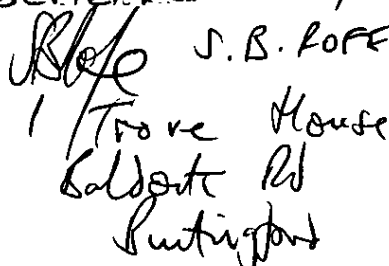 S.B. ROFE
1 Trove House
Baldock Rd
Buntingford